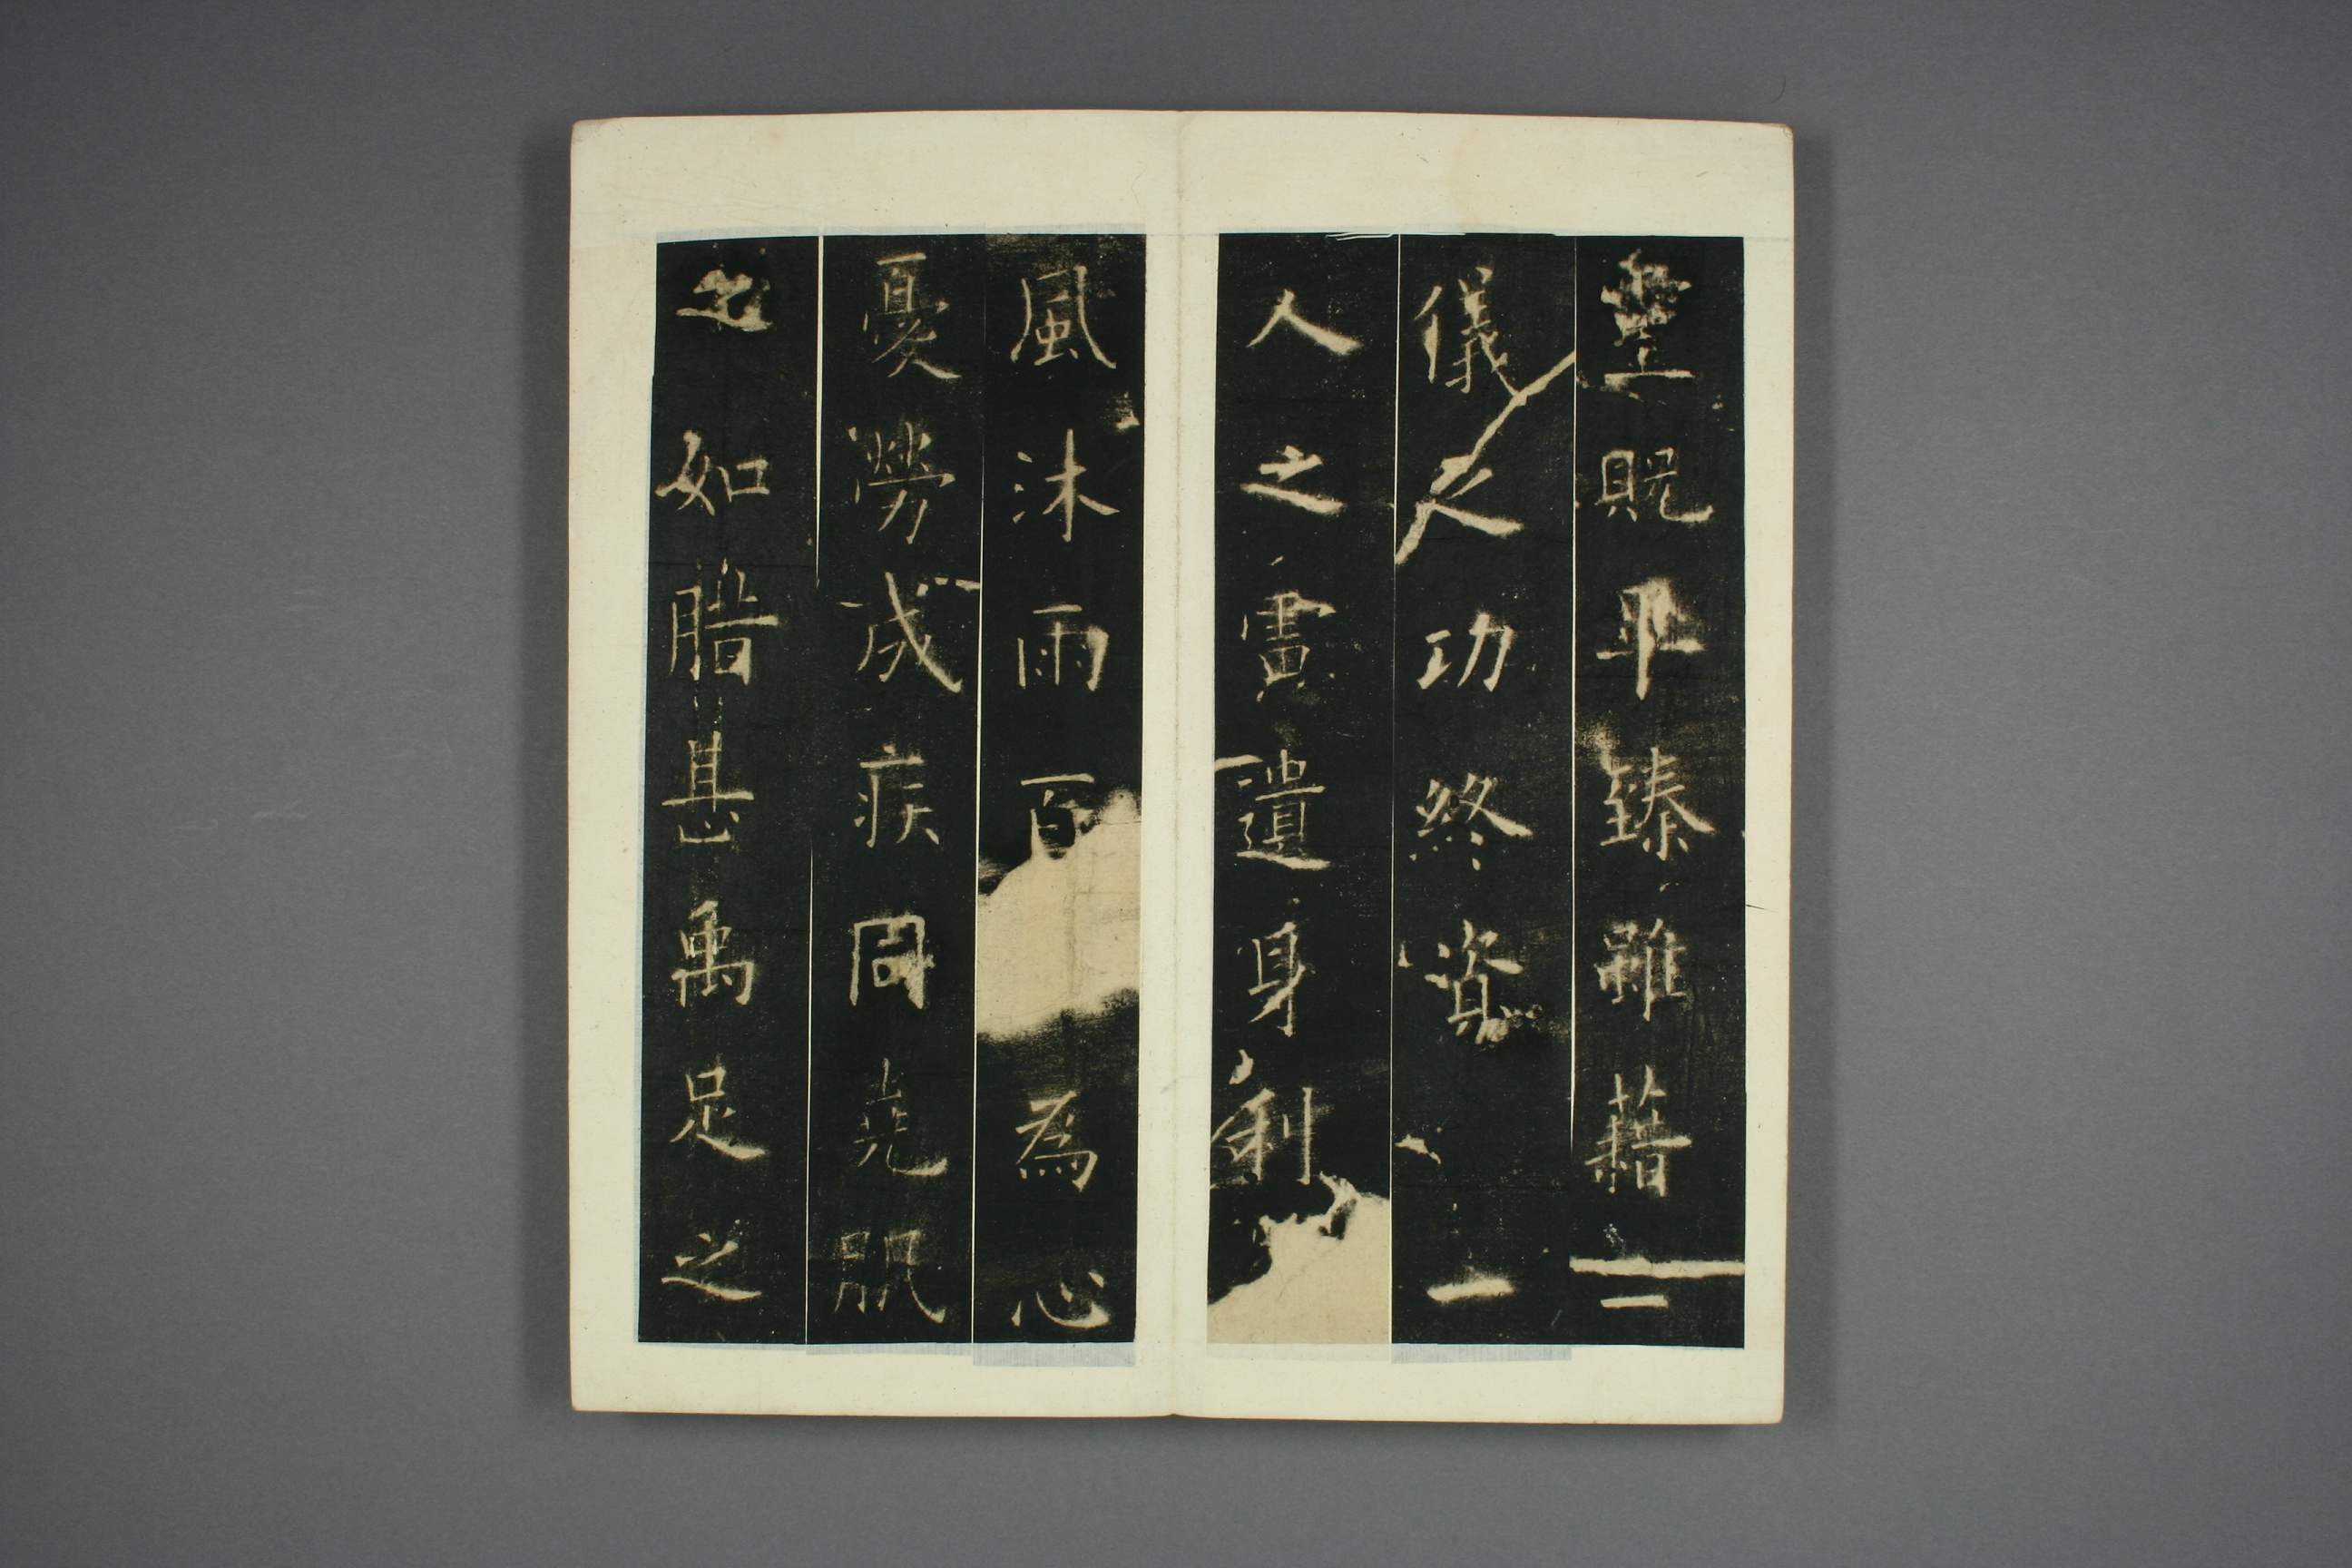 靈貺畢臻雖藉二
儀之功終資一
人之慮遺身利
風沐雨百為心
憂勞成疾同堯肌
之如腊甚禹足之